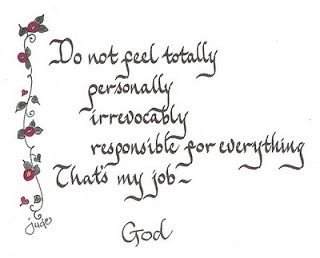 Do not feel totally
personally
irrevocably
responsible for everything
That's my job~
God
jude